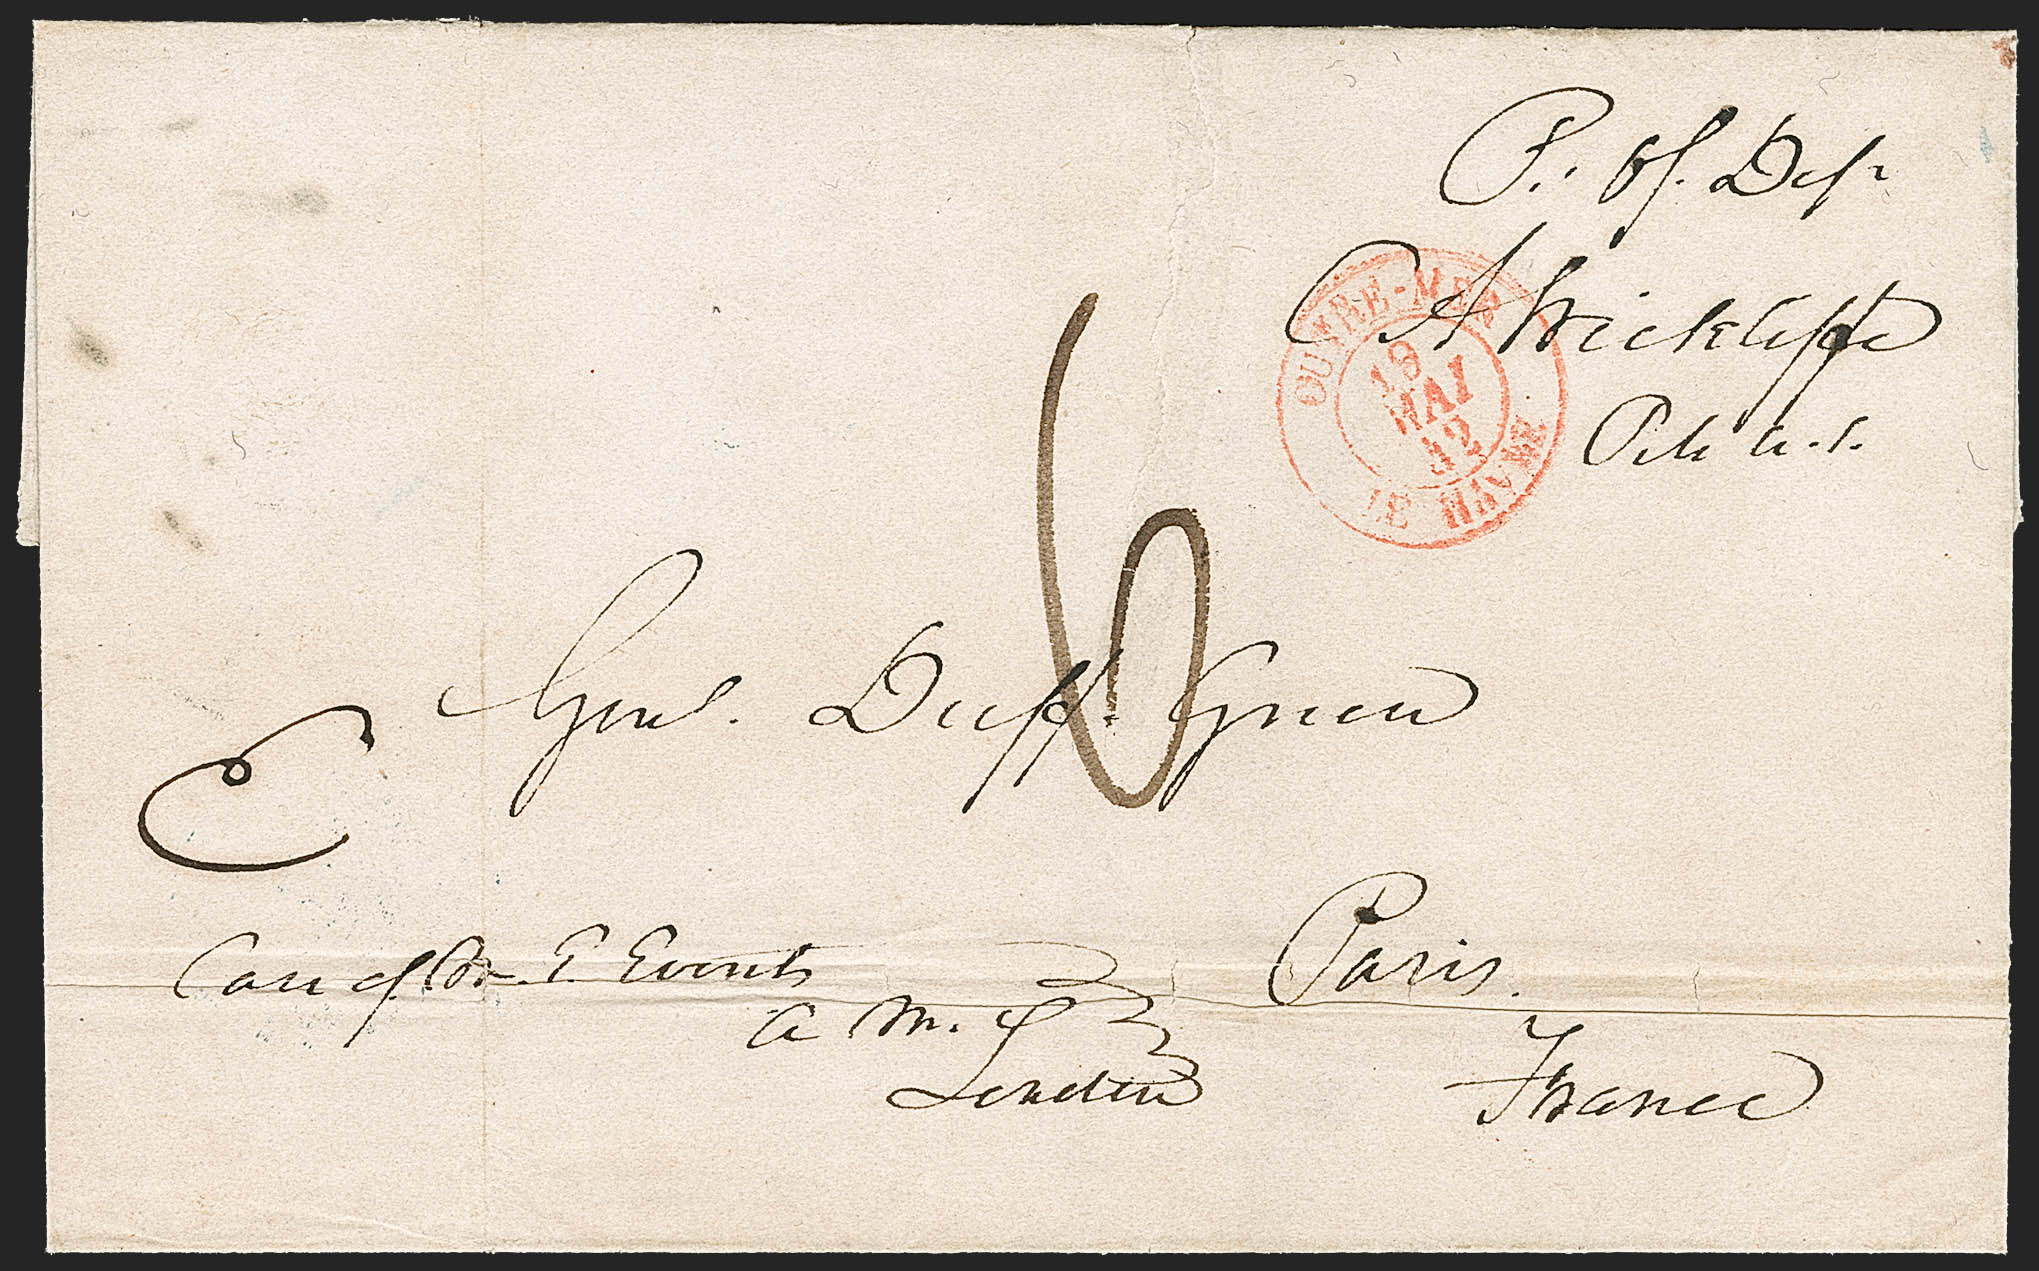 P. Of. Dep
OUTRE-MER
18
MAI
42
LE HAVRE
C A Wickliffe
P M G.
6
Genl. Duff. Green
Care of Mr. E. Everett
A M.
London
Paris.
France